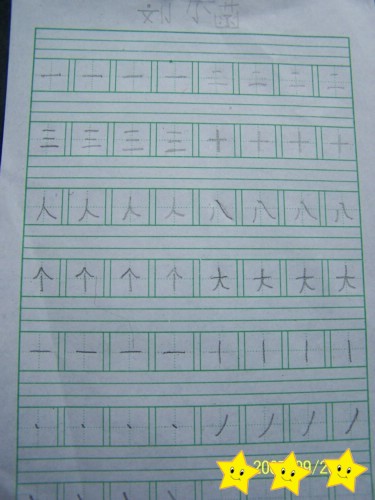 一 一 一 一 二 二 二 二
三 三 三 三 十 十 十 十
人 人 人 人 八 八 八 八
个 个 个 个 大 大 大 大
一 一 一 一 丨 丨 丨 丨
丶 丶 丶 丶 丿 丿 丿 丿